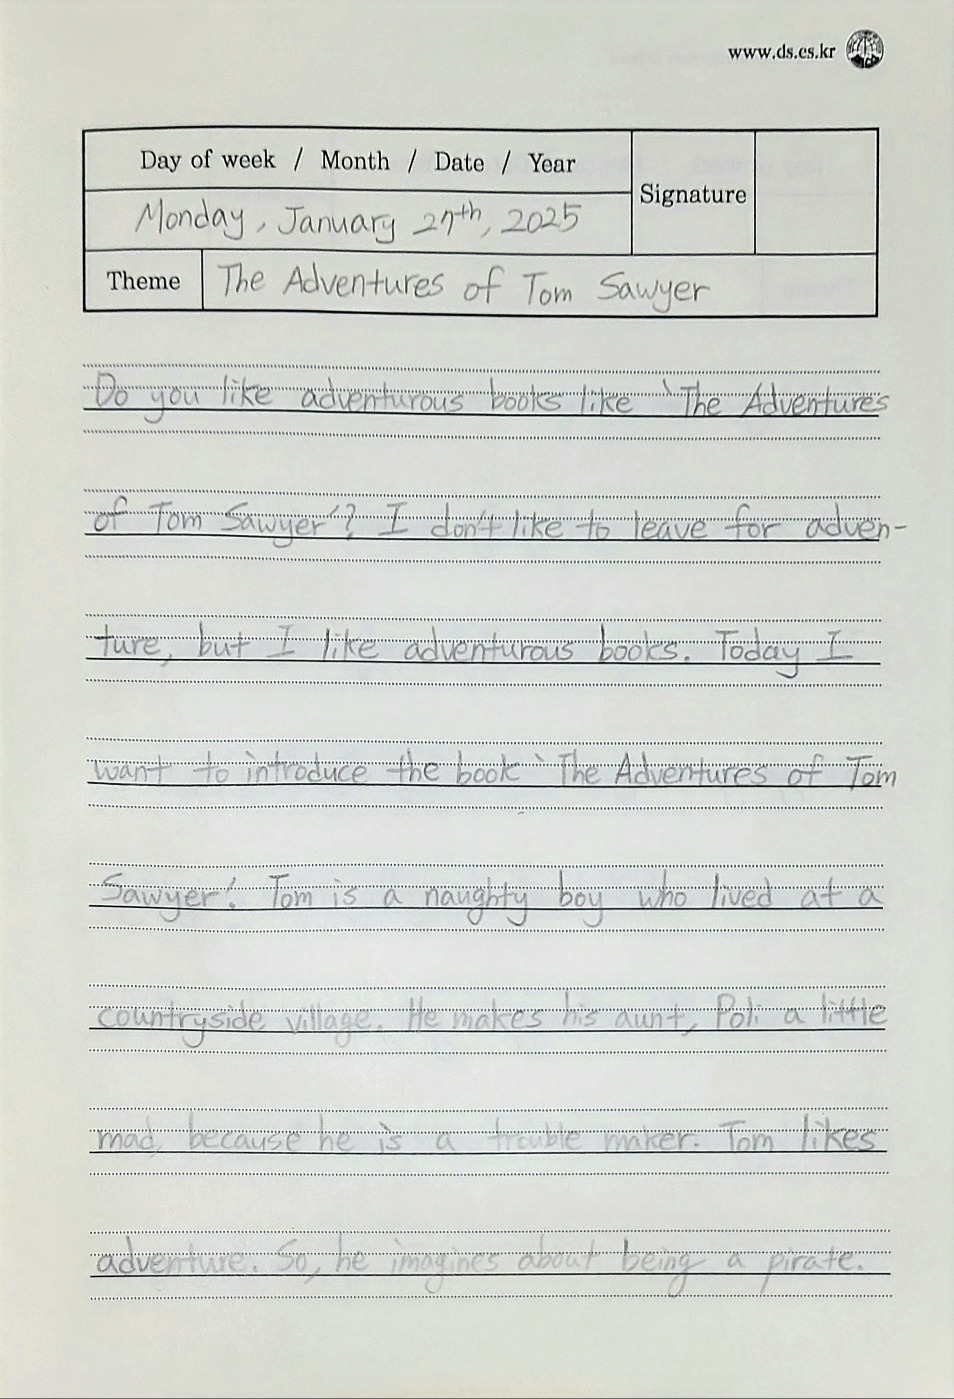 www.ds.es.kr
Day of week / Month / Date / Year
Signature
Monday, January 27th, 2025
Theme
The Adventures of Tom Sawyer
Do you like adventurous books like 'The Adventures
of Tom Sawyer'? I don't like to leave for adven-
ture, but I like adventurous books. Today I
want to introduce the book 'The Adventures of Tom
Sawyer'. Tom is a naughty boy who lived at a
countryside village. He makes his aunt, Poli a little
mad, because he is a trouble maker. Tom likes
adventure. So, he imagines about being a pirate.